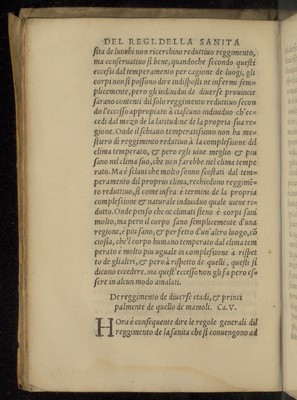 DEL REGI. DELLA SANITA
sita de luoghi non ricerchino reduttiuo reggimento,
ma conseruatiuo si bene, quandoche secondo questi
eccessi dal temperamento per cagione de luogi, gli
corpi non si possono dire indisposti ne infermi sem-
plicemente, pero gli indiuidui de diuerse prouincie
saranno contenti dil solo reggimento reduttiuo secon
do l'eccesso appropiato à ciascuno indiuiduo ch'ec=
cedi dal mezo de la latitudine de la propria sua re=
gione. Onde il schiauo temperatissimo non ha me=
stiero di reggimento redutiuo à la complessione dil
clima temperato, & pero egli uiue meglio & piu
sano nel clima suo, che non farebbe nel clima tempe
rato. Ma é sclaui che molto sonno scostati dal tem=
peramento dil proprio clima, recchiedono reggimē=
to reduttiuo, si come infra é termini de la propria
complessione & naturale indiuiduo quale uiene ri=
dutto. Onde penso che ne climati steno é corpi sani
molto, ma pero il corpo sano semplicemente d'una
regione, é piu sano, & perfetto d'un'altro luogo, cō
ciosia, che'l corpo humano temperato dal clima tem
perato é molto piu uguale in complessione à rispet=
to de gli altri, & pero à rispetto de quelli, questi si
dicono eccedere. ma quest'eccesso non gli fa pero es=
sere in alcun modo amalati.
De reggimento de diuerse etadi, & princi
palmente de quello de mamoli. Ca. V.
HOra é consequente dire le regole generali dil
reggimento de la sanita che si conuengono ad